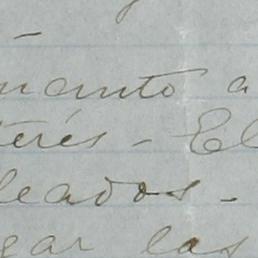 uanto a
terés - El
leados -
gar las